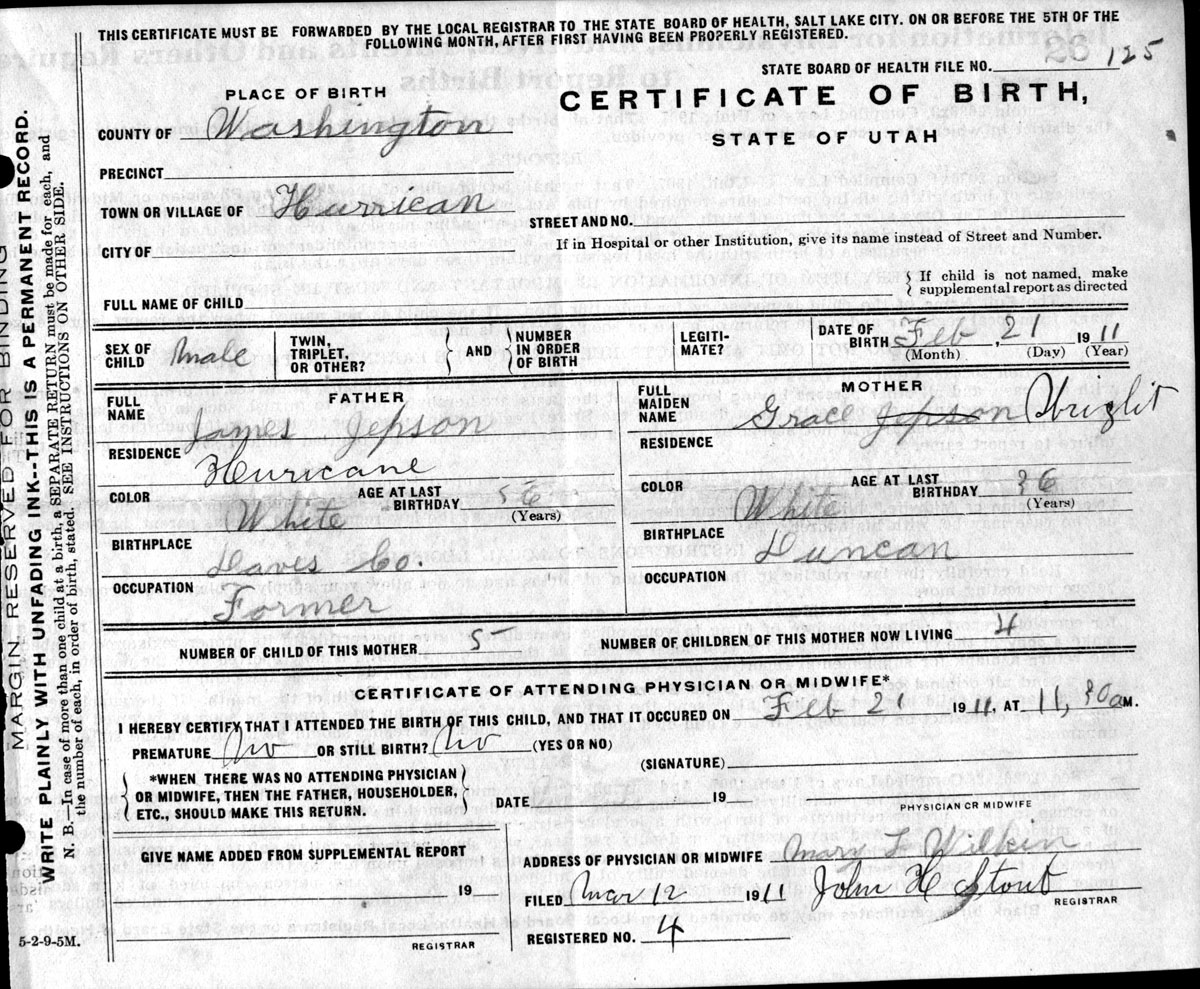 THIS CERTIFICATE MUST BE FORWARDED BY THE LOCAL REGISTRAR TO THE STATE BOARD OF HEALTH, SALT LAKE CITY. ON OR BEFORE THE 5TH OF THE
FOLLOWING MONTH, AFTER FIRST HAVING BEEN PROPERLY REGISTERED.
STATE BOARD OF HEALTH FILE NO. 125
PLACE OF BIRTH
CERTIFICATE OF BIRTH,
STATE OF UTAH
COUNTY OF Washington
PRECINCT
TOWN OR VILLAGE OF Hurrican
STREET AND NO.
CITY OF
If in Hospital or other Institution, give its name instead of Street and Number.
FULL NAME OF CHILD
{ If child is not named, make
supplemental report as directed
SEX OF CHILD male
TWIN, TRIPLET, OR OTHER?
AND NUMBER IN ORDER OF BIRTH
LEGITI-MATE?
DATE OF BIRTH Feb, 21 1911
(Month) (Day) (Year)
FATHER
FULL NAME James Jepson
RESIDENCE Hurricane
COLOR White
AGE AT LAST BIRTHDAY 56 (Years)
BIRTHPLACE Daves Co.
OCCUPATION Former
MOTHER
FULL MAIDEN NAME Grace Jepson Wright
RESIDENCE
COLOR White
AGE AT LAST BIRTHDAY 36 (Years)
BIRTHPLACE Duncan
OCCUPATION
NUMBER OF CHILD OF THIS MOTHER 5 NUMBER OF CHILDREN OF THIS MOTHER NOW LIVING 4
CERTIFICATE OF ATTENDING PHYSICIAN OR MIDWIFE*
I HEREBY CERTIFY THAT I ATTENDED THE BIRTH OF THIS CHILD, AND THAT IT OCCURED ON Feb 21 1911, AT 11,30a M.
PREMATURE No OR STILL BIRTH? No (YES OR NO)
(SIGNATURE)
*WHEN THERE WAS NO ATTENDING PHYSICIAN
OR MIDWIFE, THEN THE FATHER, HOUSEHOLDER,
ETC., SHOULD MAKE THIS RETURN.
DATE 19
PHYSICIAN OR MIDWIFE
GIVE NAME ADDED FROM SUPPLEMENTAL REPORT
19
REGISTRAR
ADDRESS OF PHYSICIAN OR MIDWIFE Mary L Wilkin
FILED Mar 12 1911 John H Stout
REGISTRAR
REGISTERED NO. 4
5-2-9-5M.
MARGIN RESERVED FOR BINDING
WRITE PLAINLY WITH UNFADING INK--THIS IS A PERMANENT RECORD.
N. B.—In case of more than one child at a birth, a SEPARATE RETURN must be made for each, and
the number of each, in order of birth, stated. SEE INSTRUCTIONS ON OTHER SIDE.